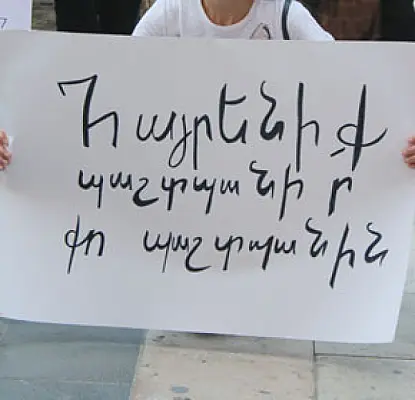 Հայրենիք
պաշտպանի՛ր
քո պաշտպանին